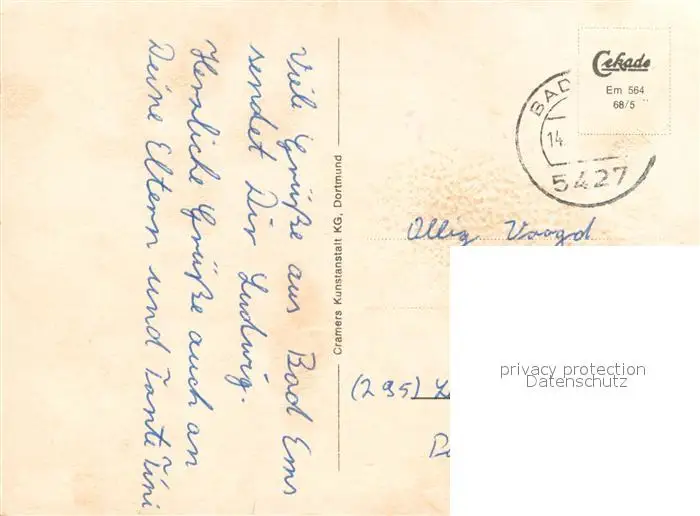 Viele Grüße aus Bad Ems
sendet Dir Ludwig.
Herzliche Grüße auch an
Deine Eltern und Tante Tini
Cramers Kunstanstalt KG, Dortmund
Cekade
Em 564
68/5
BAD
14
5427
Voogd
(295)
privacy protection
Datenschutz